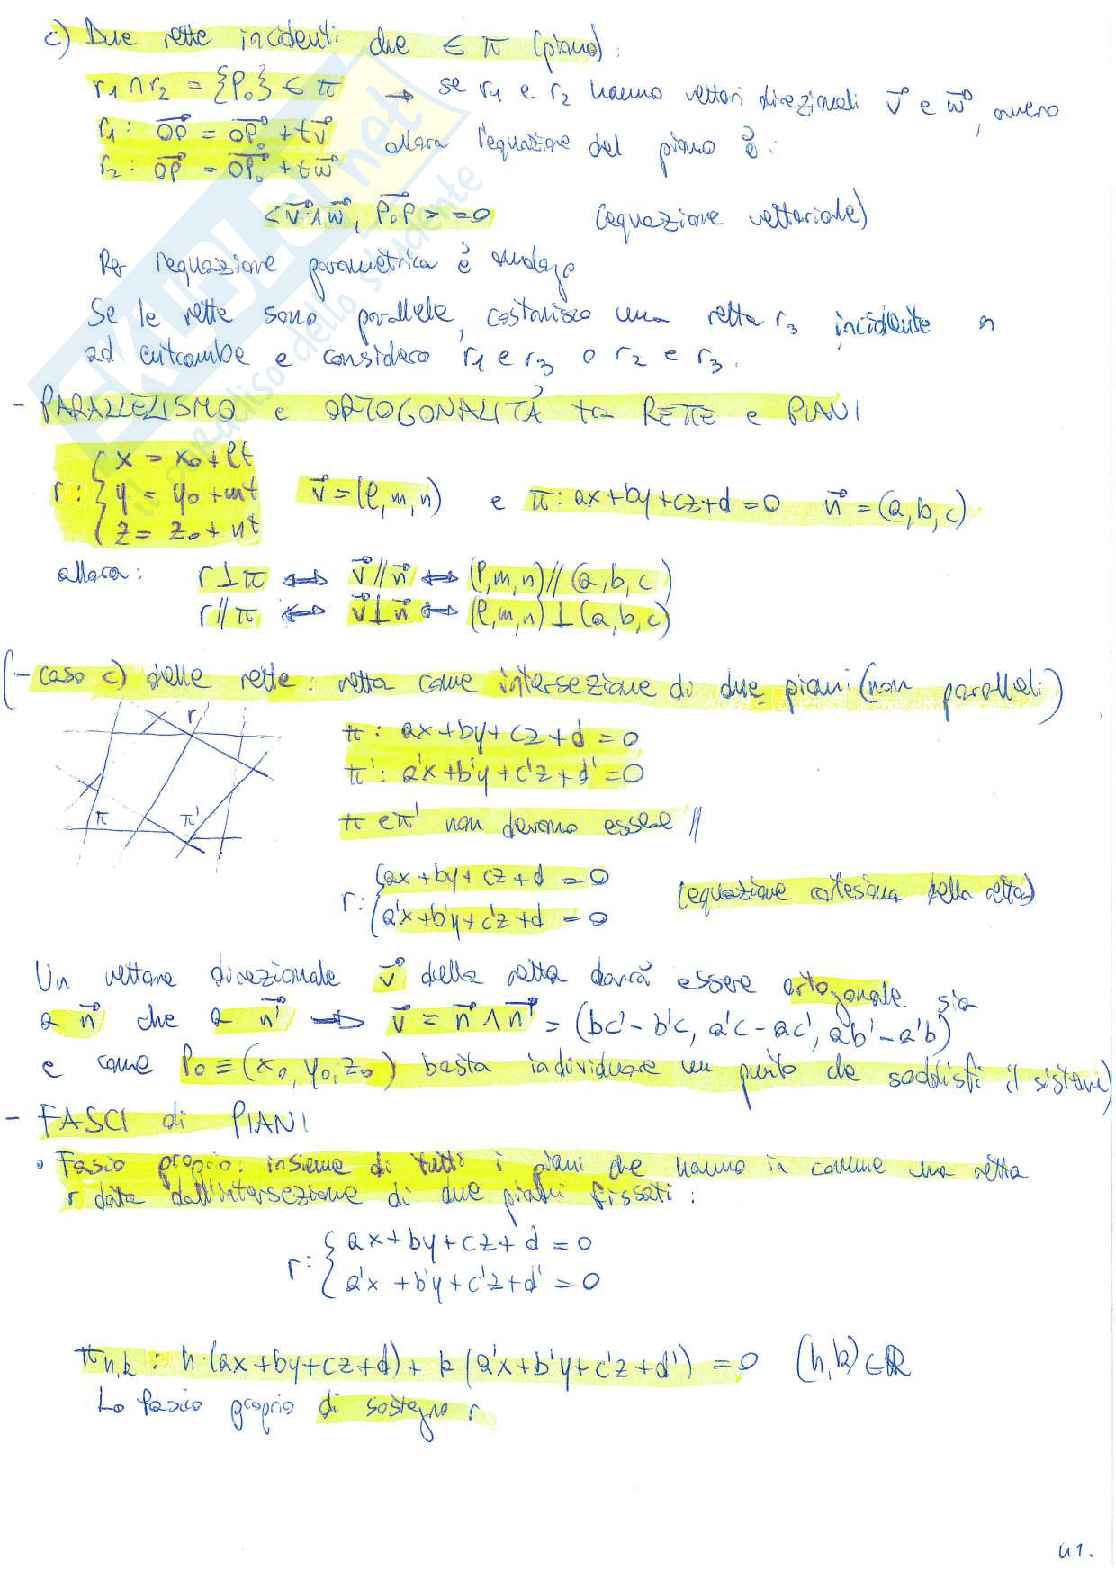 c) Due rette incidenti che ∈ π (piano):
r₁ ∩ r₂ = {P₀} ∈ π → se r₁ e r₂ hanno vettori direzionali v⃗ e w⃗, ovvero
r₁: OP⃗ = OP₀⃗ + tv⃗ allora l'equazione del piano è:
r₂: OP⃗ = OP₀⃗ + tw⃗
<v⃗∧w⃗, P₀P⃗> = 0 (equazione vettoriale)
Per l'equazione parametrica è analogo
Se le rette sono parallele, costruisco una retta r₃ incidente
ad entrambe e considero r₁ e r₃ o r₂ e r₃.
- PARALLELISMO e ORTOGONALITÁ tra RETTE e PIANI
r: { x = x₀ + lt
y = y₀ + mt v⃗ = (l, m, n) e π: ax+by+cz+d=0 n⃗ = (a, b, c)
z = z₀ + nt
allora: r⊥π ⟺ v⃗//n⃗ ⟺ (l,m,n)//(a,b,c)
r//π ⟺ v⃗⊥n⃗ ⟺ (l,m,n)⊥(a,b,c)
(- caso c) delle rette: retta come intersezione di due piani (non paralleli)
r
π: ax+by+cz+d=0
π': a'x+b'y+c'z+d'=0
π π'
π e π' non devono essere //
r: { ax+by+cz+d=0
a'x+b'y+c'z+d=0 (equazione cartesiana della retta)
Un vettore direzionale v⃗ della retta dovrà essere ortogonale sia
a n⃗ che a n⃗' ⟹ v⃗ = n⃗∧n⃗' = (bc'-b'c, a'c-ac', ab'-a'b)
e come P₀ ≡ (x₀, y₀, z₀) basta individuare un punto che soddisfi il sistema)
- FASCI di PIANI
• Fascio proprio: insieme di tutti i piani che hanno in comune una retta
r data dall'intersezione di due piani fissati:
r: { ax+by+cz+d=0
a'x+b'y+c'z+d'=0
π h,k : h·(ax+by+cz+d)+k(a'x+b'y+c'z+d')=0 (h,k)∈ℝ
↳ fascio proprio di sostegno r
41.
SKUOLA.net
il paradiso dello studente